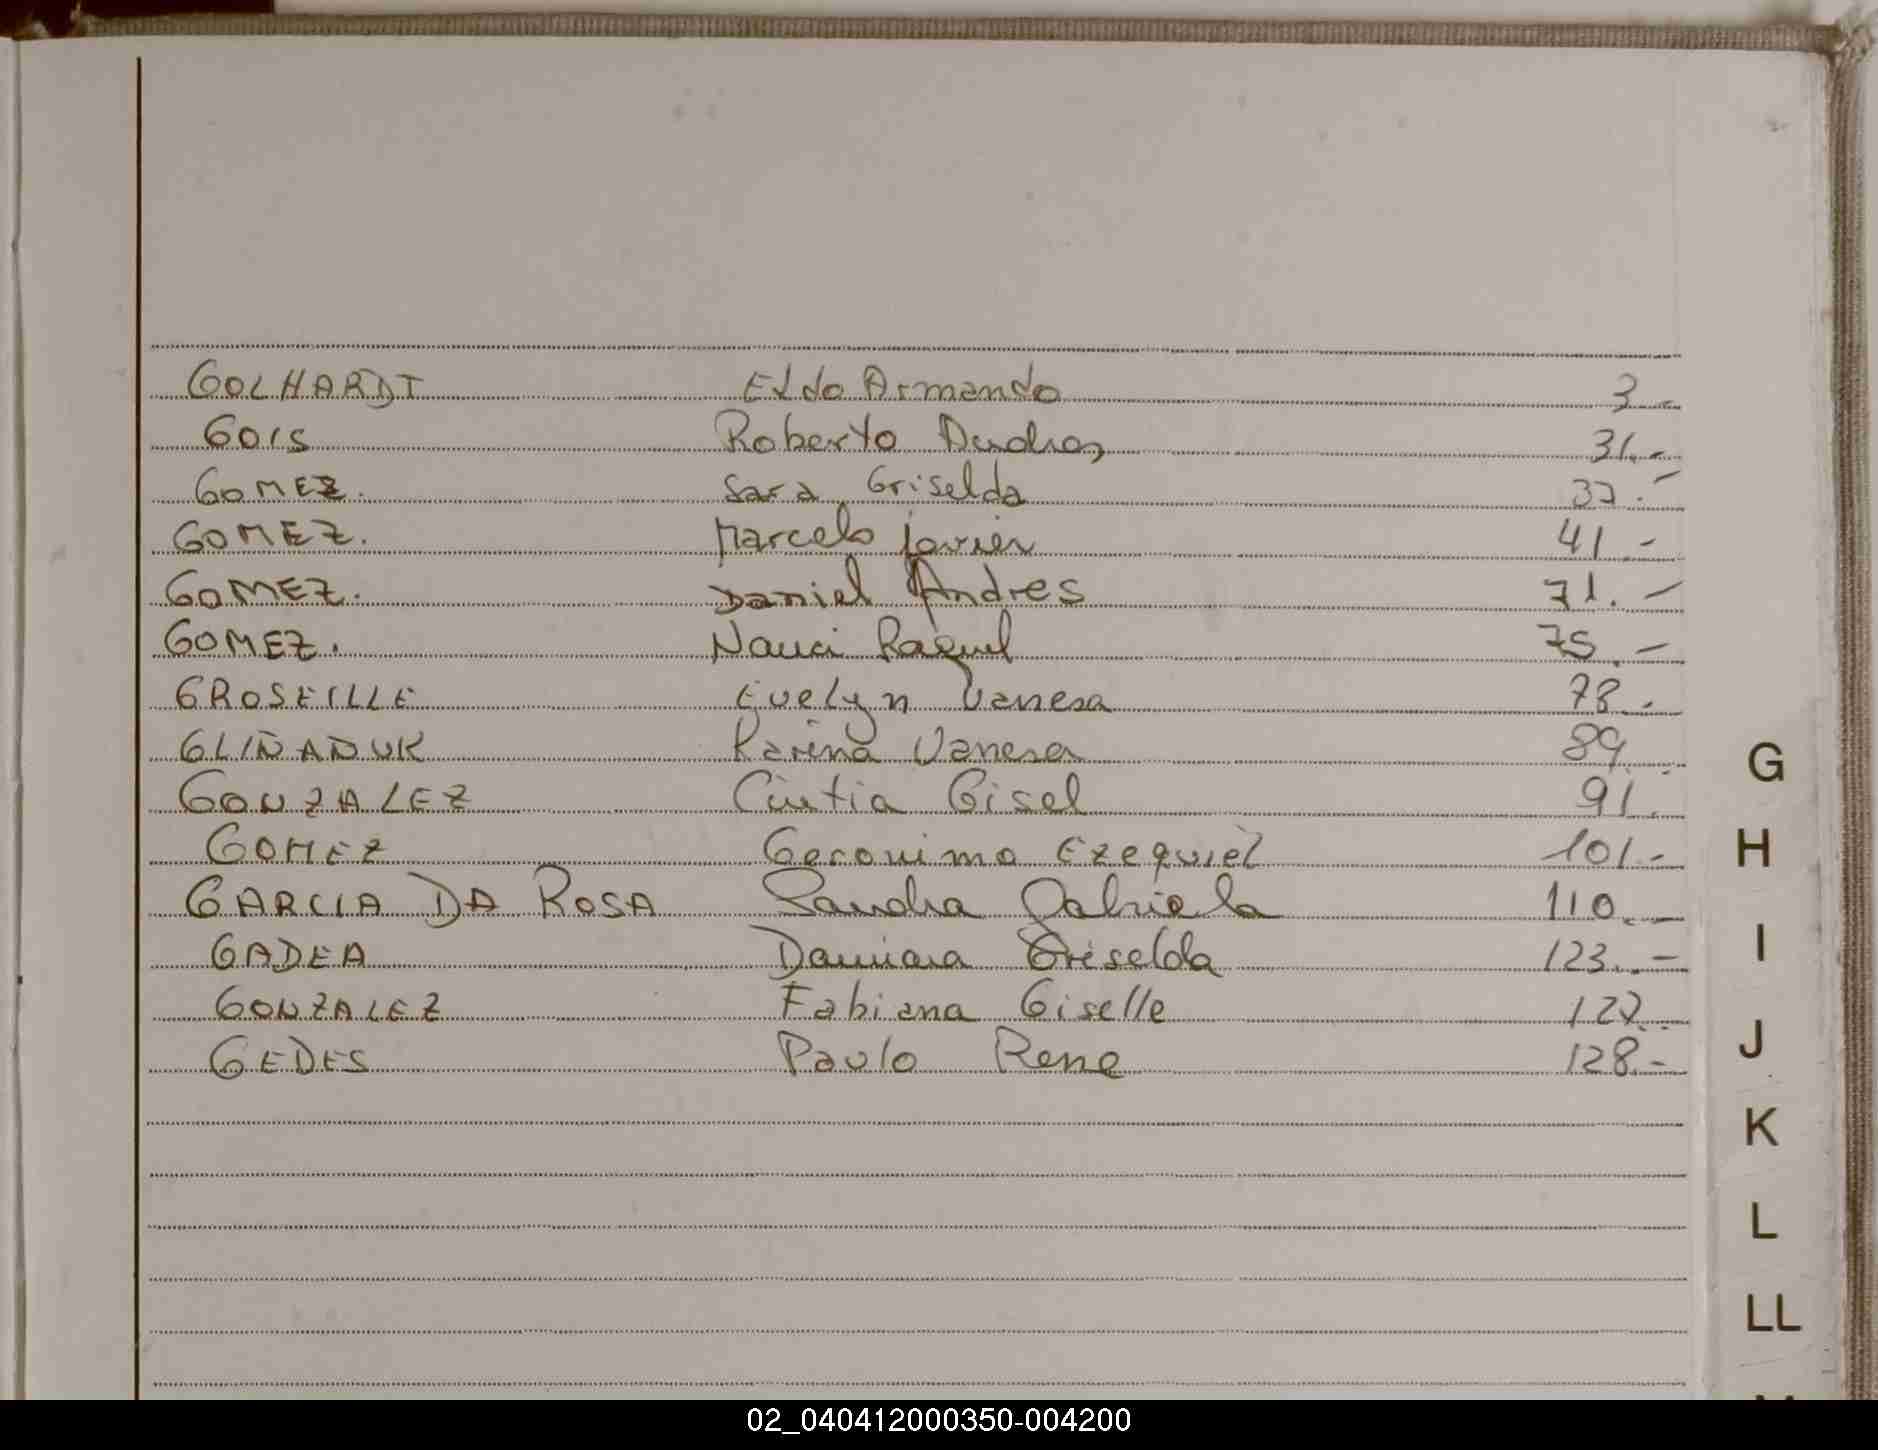 GOLHARDT Eldo Armando 3.-
GOIS Roberto Andres 31.-
GOMEZ. Sara Griselda 37.-
GOMEZ. Marcelo Javier 41.-
GOMEZ. Daniel Andres 71.-
GOMEZ. Nanci Raquel 75.-
GROSEILLE Evelyn Vanesa 78.-
GLINANUK Karina Vanesa 89.
GONZALEZ Cintia Gisel 91.
GOMEZ Geronimo Ezequiel 101.-
GARCIA DA ROSA Sandra Gabriela 110.-
GADEA Damiana Griselda 123.-
GONZALEZ Fabiana Giselle 127.-
GEDES Paulo Rene 128.-
G
H
I
J
K
L
LL
02_040412000350-004200